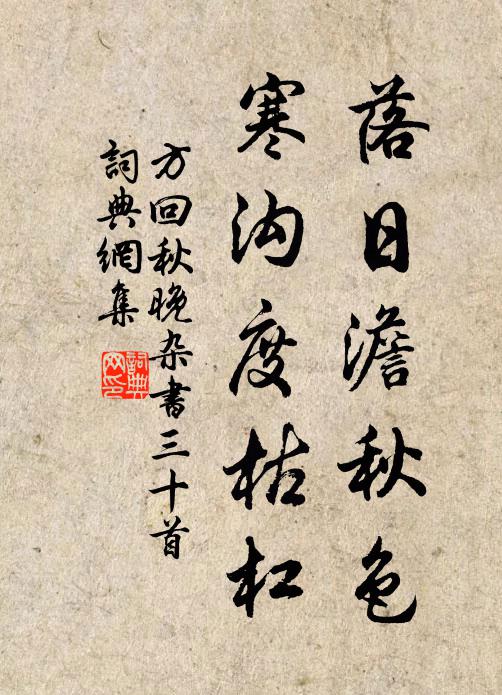 落日澹秋色
寒沟度枯杠
方回秋晚杂书三十首
詞典網集
詞典网印